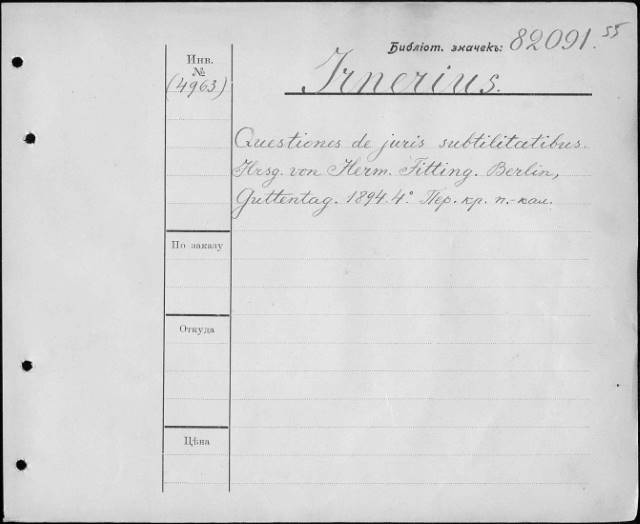 Библіот. значекъ: 82091.55
Инв. №
(4963)
Irnerius.
Questiones de juris subtilitatibus.
Hrsg. von Herm. Fitting. Berlin,
Guttentag. 1894. 4° Пер. кр. п.-кал.
По заказу
Откуда
Цѣна